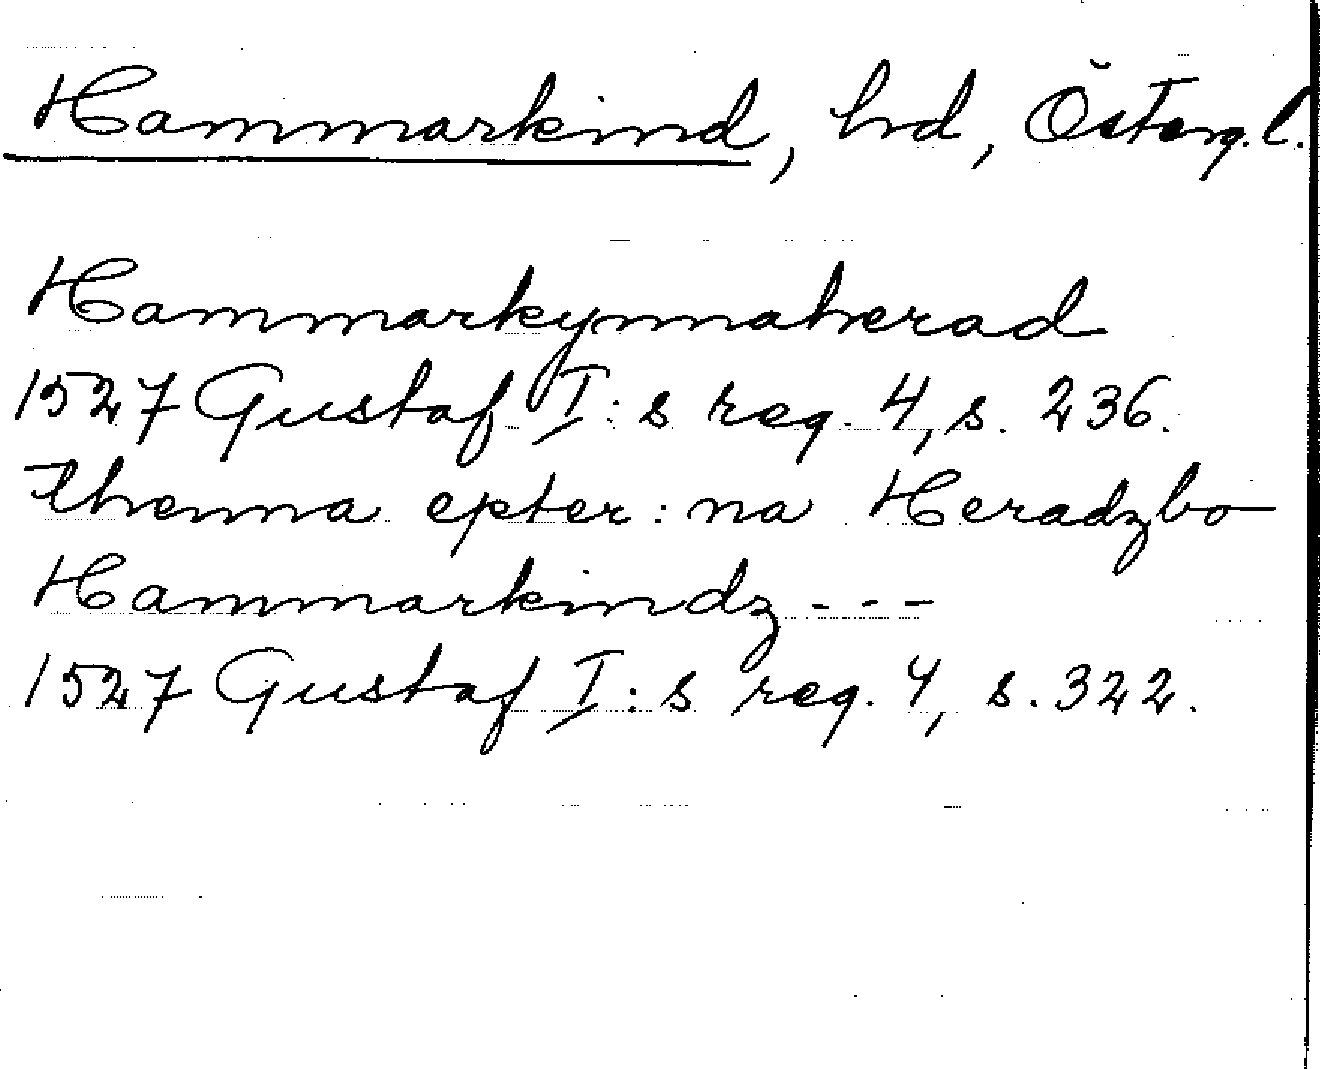 Hammarkind, hd, Österg. l.
Hammarkynnaherad
1527 Gustaf I:s reg. 4, s. 236.
thenna epter:na Heradzbo
Hammarkindz - - -
1527 Gustaf I:s reg. 4, s. 322.